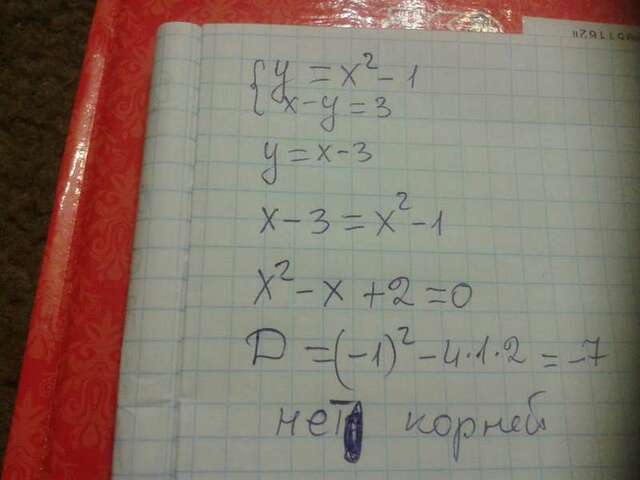 {y = x² - 1
x - y = 3
y = x - 3
x - 3 = x² - 1
x² - x + 2 = 0
D = (-1)² - 4·1·2 = -7
нет корней